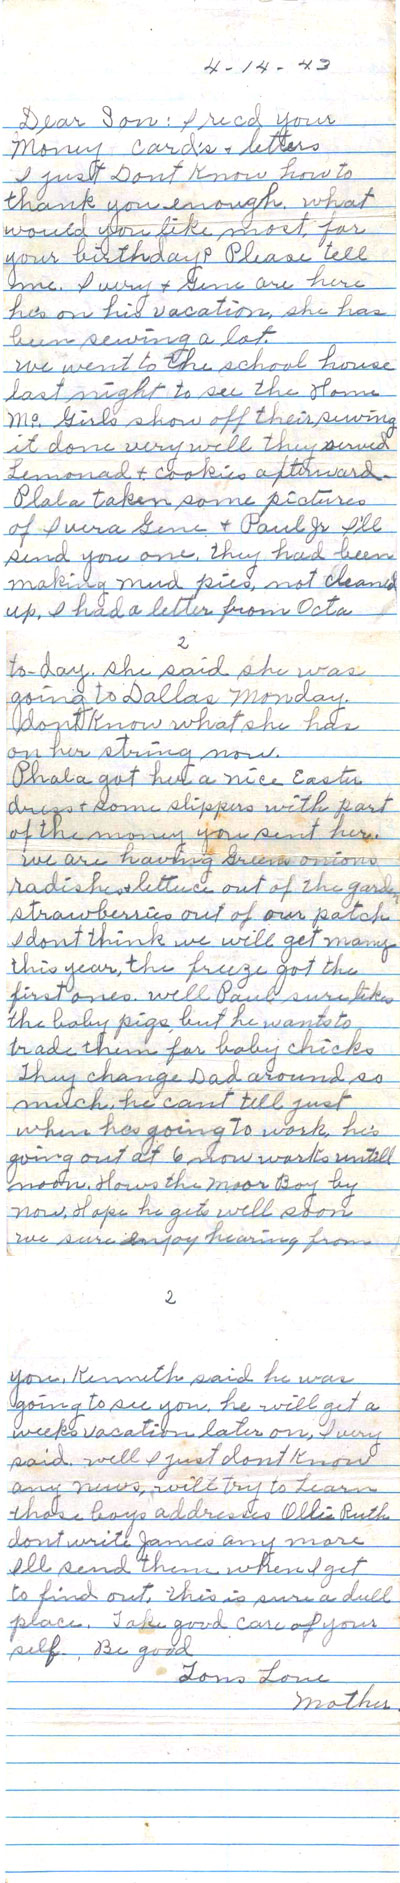 4-14-43
Dear Son: I recd your
Money cards + letters
I just Dont Know how to
thank you enough. what
would you like most for
your birthday? Please tell
me. Ivery + Gene are here
he's on his vacation, she has
been sewing a lot.
We went to the school house
last night to see the Home
Mc. Girls show off their sewing
it done very well they served
Lemonad + cookies afterward.
Plala taken some pictures
of Ivera Gene + Paul Jr I'll
send you one. they had been
making mud pies, not cleaned
up. I had a letter from Octa
2
to-day. she said she was
going to Dallas Monday.
I dont Know what she has
on her string now.
Phala got her a nice Easter
dress + some slippers with part
of the money you sent her.
we are having Greens onions
radishes + lettuce out of the garden
strawberries out of our patch
I dont think we will get many
this year, the freeze got the
first ones. well Paul sure likes
the baby pigs, but he wants to
trade them for baby chicks
They change Dad around so
much, he can't tell just
when hes going to work, he's
going out at 6 now works untill
noon. Hows the Moor Boy by
now, Hope he gets well soon
we sure enjoy hearing from
2
you. Kenneth said he was
going to see you, he will get a
weeks vacation later on, Ivery
said. well I just dont Know
any news, will try to Learn
those boys addresses Ollie Ruth
dont write James any more
I'll send them when I get
to find out. this is sure a dull
place. Take good care of your
self. Be good
Tons Love
Mother.